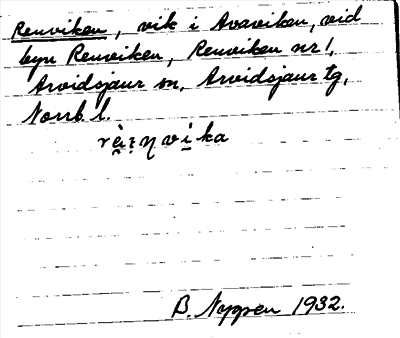 Renviken, vik i Avaviken, vid
byn Renviken, Renviken nr 1,
Arvidsjaur sn, Arvidsjaur tg,
Norrb. l.
B. Nyppen 1932.